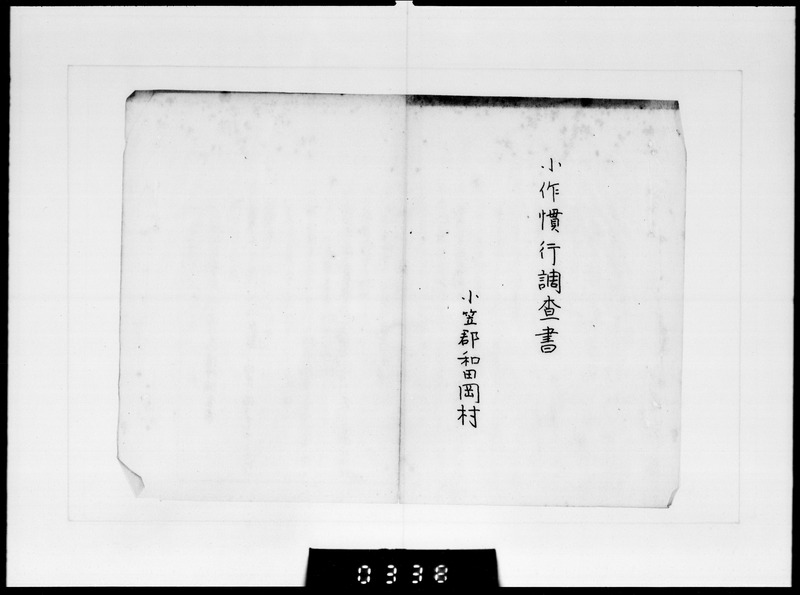 小作慣行調査書
小笠郡和田岡村
0338